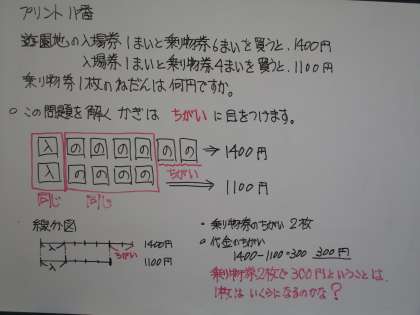 プリント 11番
遊園地の入場券1まいと乗り物券6まいを買うと、1400円
入場券1まいと乗り物券4まいを買うと、1100円
乗り物券1枚のねだんは何円ですか。
○ この問題を解くかぎは ちがい に目をつけます。
入 の の の の の の → 1400円
ちがい
入 の の の の → 1100円
同じ 同じ
線分図
1400円
入 ちがい
1100円
入
・乗り物券のちがい 2枚
○ 代金のちがい
1400-1100=300 300円
乗り物券2枚で300円ということは、
1枚は いくらになるのかな?